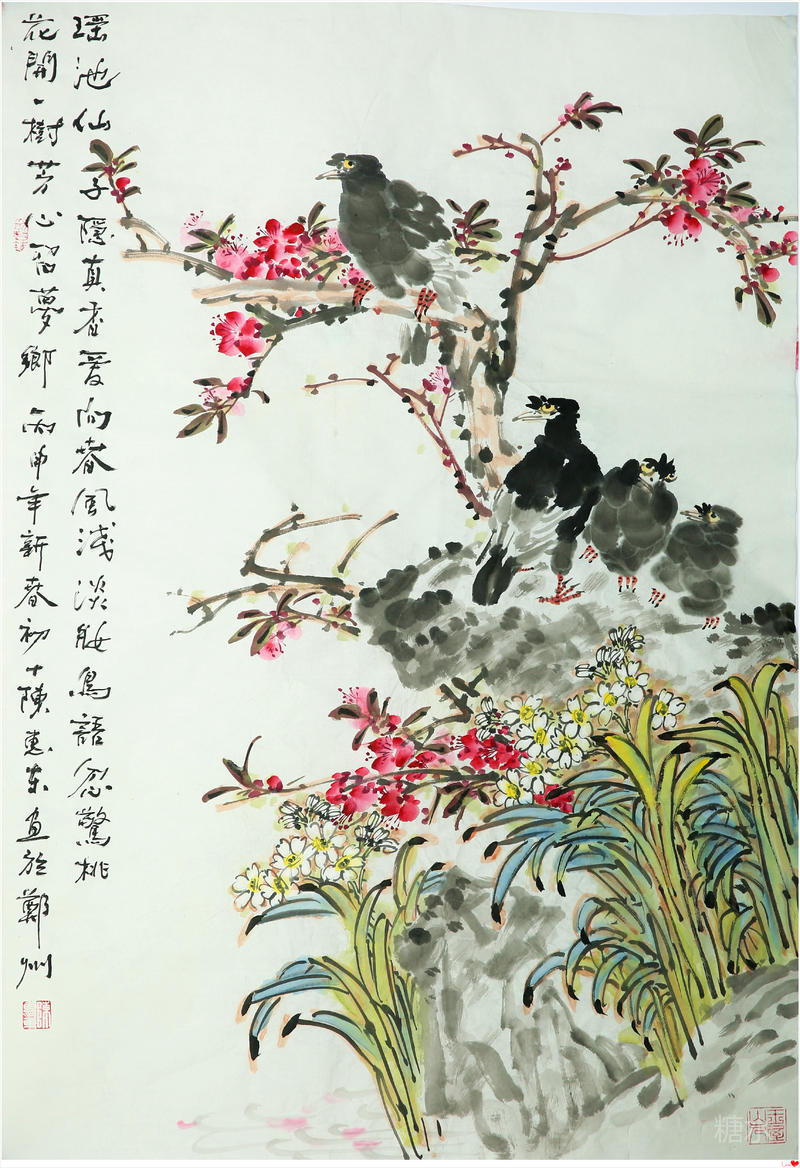 瑶池仙子隱真香愛向春風淺淡妝鳥語忽驚桃
花開一樹芳心留夢鄉丙申年新春初十陳惠東畫於鄭州